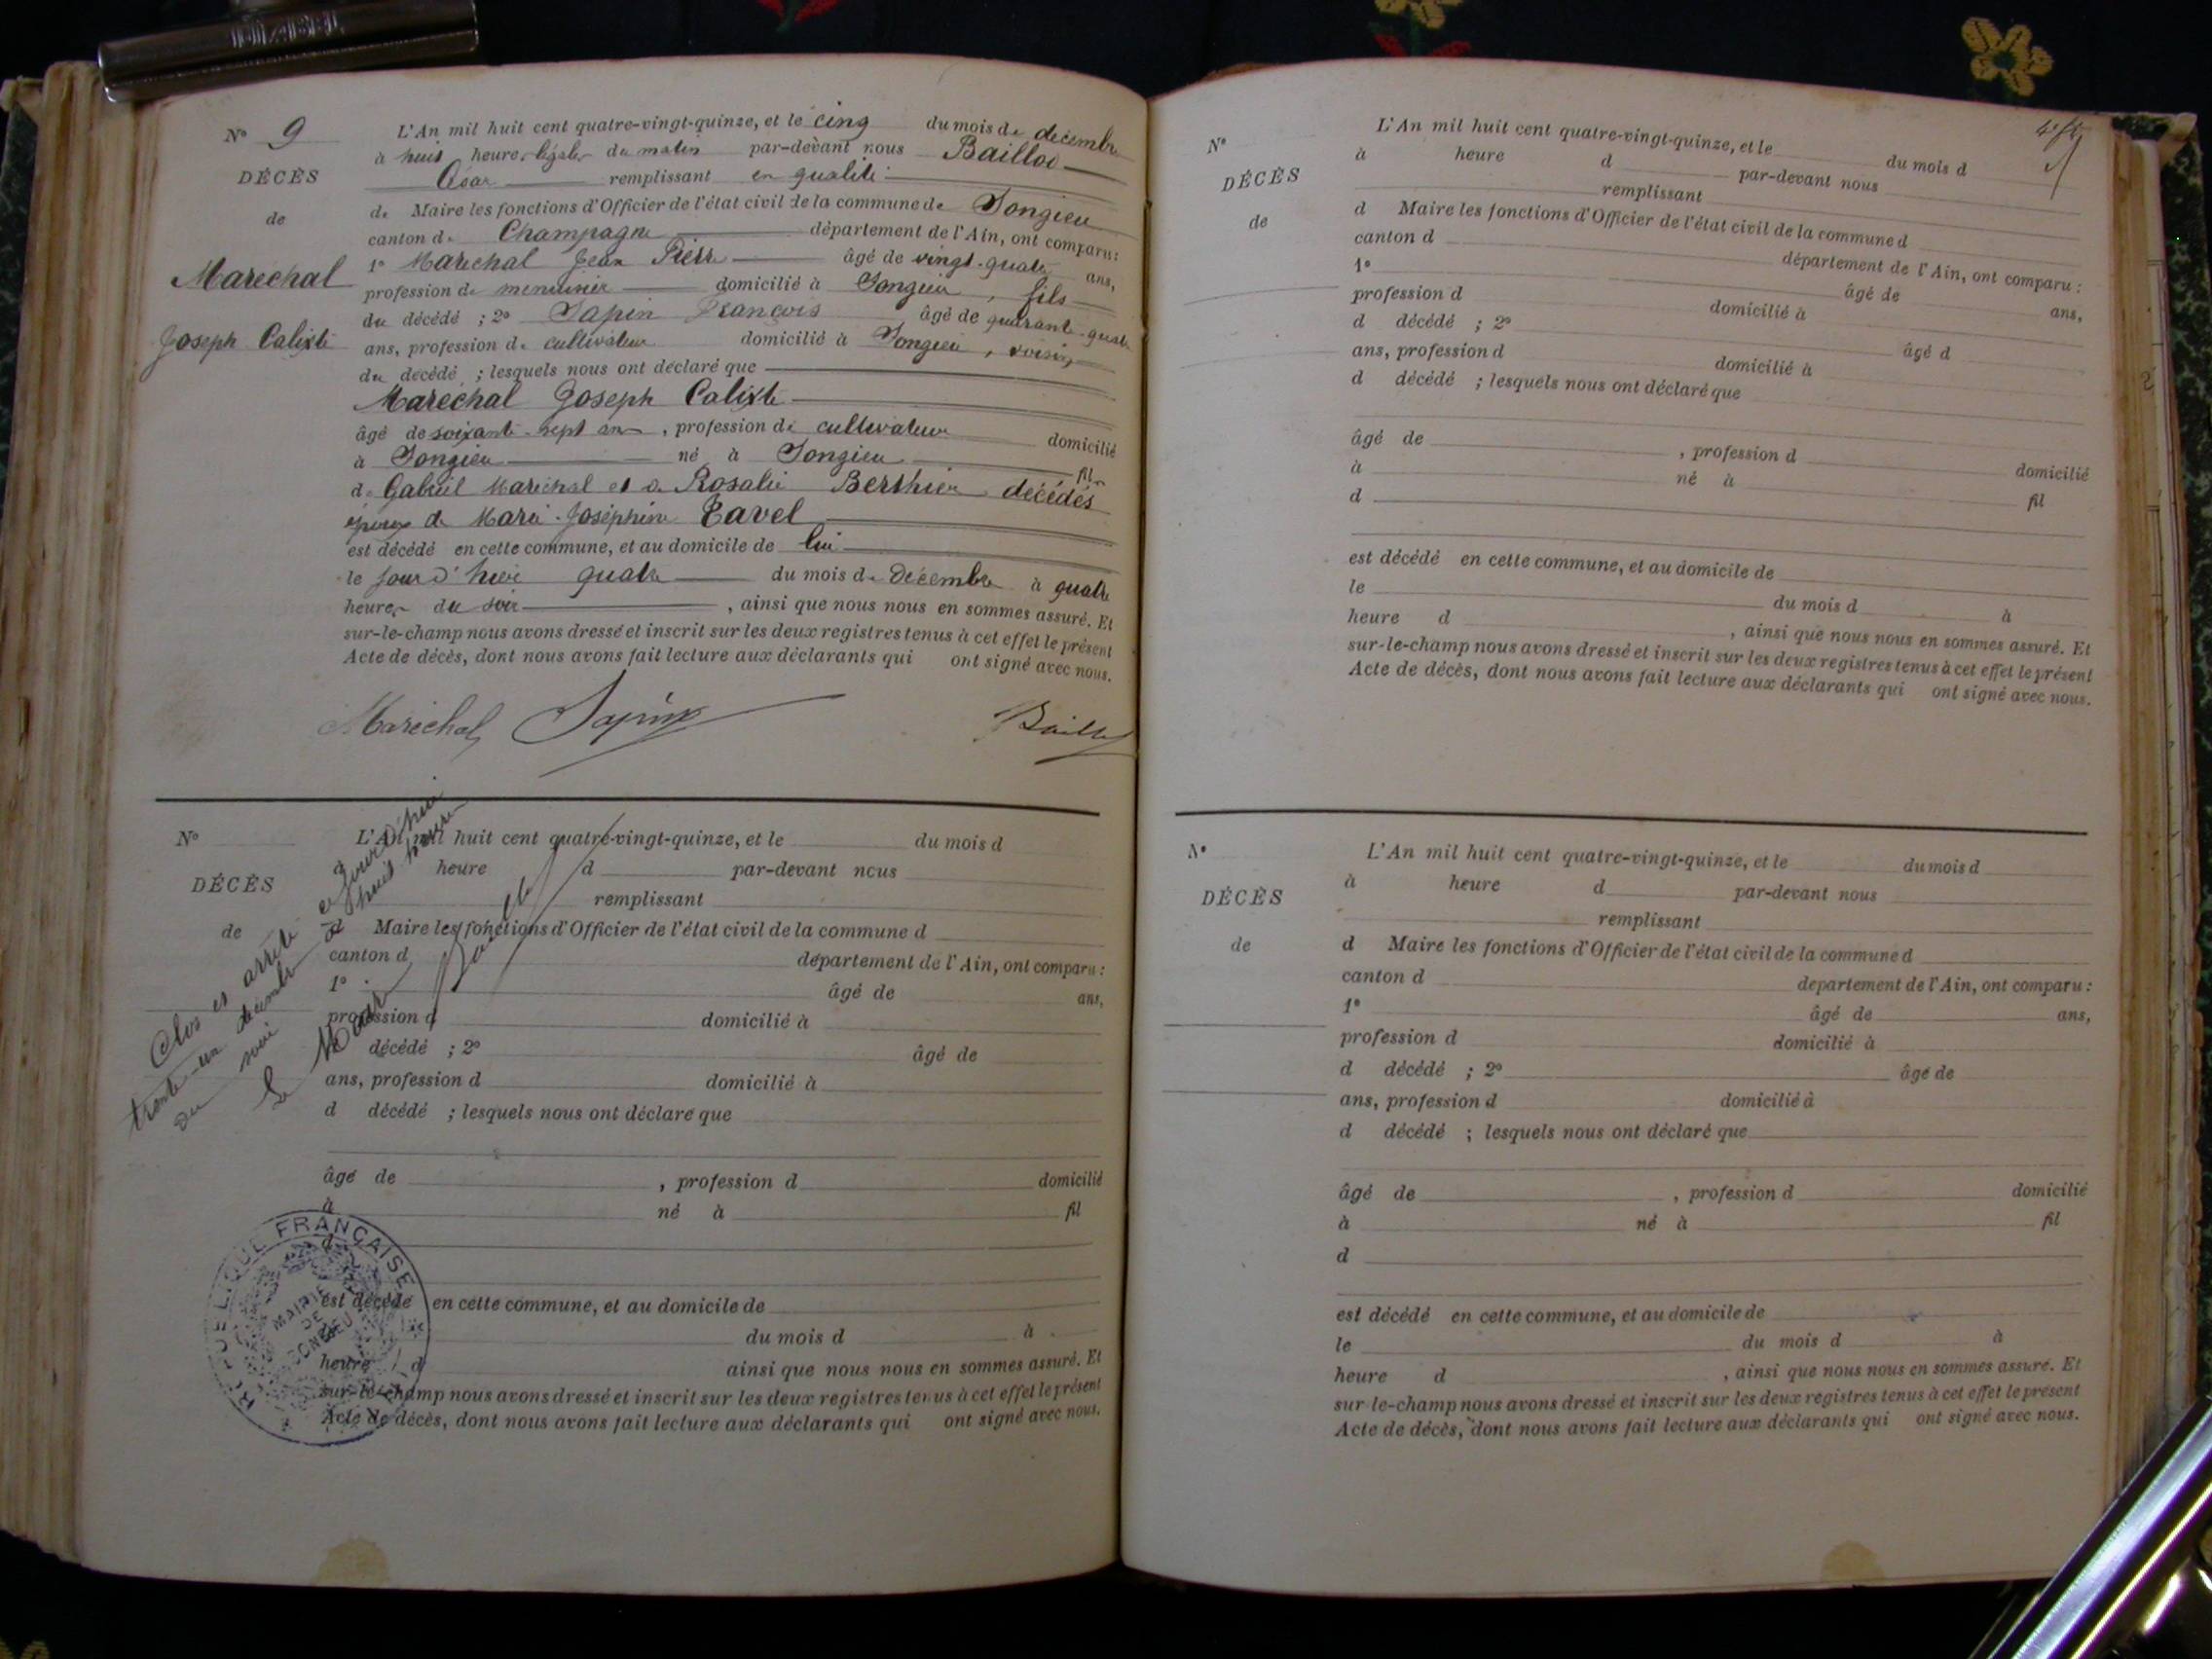 N° 9
DÉCÈS
de
Marechal
Joseph Calixte
L'An mil huit cent quatre-vingt-quinze, et le cinq du mois de décembre
à huit heures légales du matin par-devant nous Baillod
César remplissant en qualité
de Maire les fonctions d'Officier de l'état civil de la commune de Songieu
canton de Champagne département de l'Ain, ont comparu:
1° Maréchal Jean Pierre âgé de vingt-quatre ans,
profession de menuisier domicilié à Songieu, fils
du décédé ; 2° Sapin François âgé de quarante-quatre
ans, profession de cultivateur domicilié à Songieu, voisin
du décédé ; lesquels nous ont déclaré que
Maréchal Joseph Calixte
âgé de soixante-sept ans, profession de cultivateur domicilié
à Songieu né à Songieu fils
de Gabriel Maréchal et de Rosalie Berthier décédés
époux de Marie-Joséphine Tavel
est décédé en cette commune, et au domicile de lui
le jour d'hier quatre du mois de Décembre à quatre
heures du soir, ainsi que nous nous en sommes assuré. Et
sur-le-champ nous avons dressé et inscrit sur les deux registres tenus à cet effet le présent
Acte de décès, dont nous avons fait lecture aux déclarants qui ont signé avec nous.
Maréchal Sapin Bailld
N°
DÉCÈS
de
L'An mil huit cent quatre-vingt-quinze, et le du mois d
à heure d par-devant nous
remplissant
d Maire les fonctions d'Officier de l'état civil de la commune d
canton d département de l'Ain, ont comparu :
1° âgé de ans,
profession d domicilié à
décédé ; 2° âgé de
ans, profession d domicilié à
d décédé ; lesquels nous ont déclaré que
âgé de , profession d domicilié
à né à fil
d
est décédé en cette commune, et au domicile de
du mois d à
heure d ainsi que nous nous en sommes assuré. Et
sur-le-champ nous avons dressé et inscrit sur les deux registres tenus à cet effet le présent
Acte de décès, dont nous avons fait lecture aux déclarants qui ont signé avec nous.
Clos et arrêté ce jourd'hui
trente-un décembre à huit heures
du soir
Le Maire
RÉPUBLIQUE FRANÇAISE
MAIRIE
DE
SONGIEU
N°
DÉCÈS
de
L'An mil huit cent quatre-vingt-quinze, et le du mois d
à heure d par-devant nous
remplissant
d Maire les fonctions d'Officier de l'état civil de la commune d
canton d département de l'Ain, ont comparu :
1° âgé de ans,
profession d domicilié à
d décédé ; 2° âgé d
ans, profession d domicilié à
d décédé ; lesquels nous ont déclaré que
âgé de , profession d domicilié
à né à fil
d
est décédé en cette commune, et au domicile de
le du mois d à
heure d , ainsi que nous nous en sommes assuré. Et
sur-le-champ nous avons dressé et inscrit sur les deux registres tenus à cet effet le présent
Acte de décès, dont nous avons fait lecture aux déclarants qui ont signé avec nous.
N°
DÉCÈS
de
L'An mil huit cent quatre-vingt-quinze, et le du mois d
à heure d par-devant nous
remplissant
d Maire les fonctions d'Officier de l'état civil de la commune d
canton d departement de l'Ain, ont comparu :
1° âgé de ans,
profession d domicilié à
d décédé ; 2° âgé de
ans, profession d domicilié à
d décédé ; lesquels nous ont déclaré que
âgé de , profession d domicilié
à né à fil
d
est décédé en cette commune, et au domicile de
le du mois d à
heure d , ainsi que nous nous en sommes assuré. Et
sur-le-champ nous avons dressé et inscrit sur les deux registres tenus à cet effet le présent
Acte de décès, dont nous avons fait lecture aux déclarants qui ont signé avec nous.